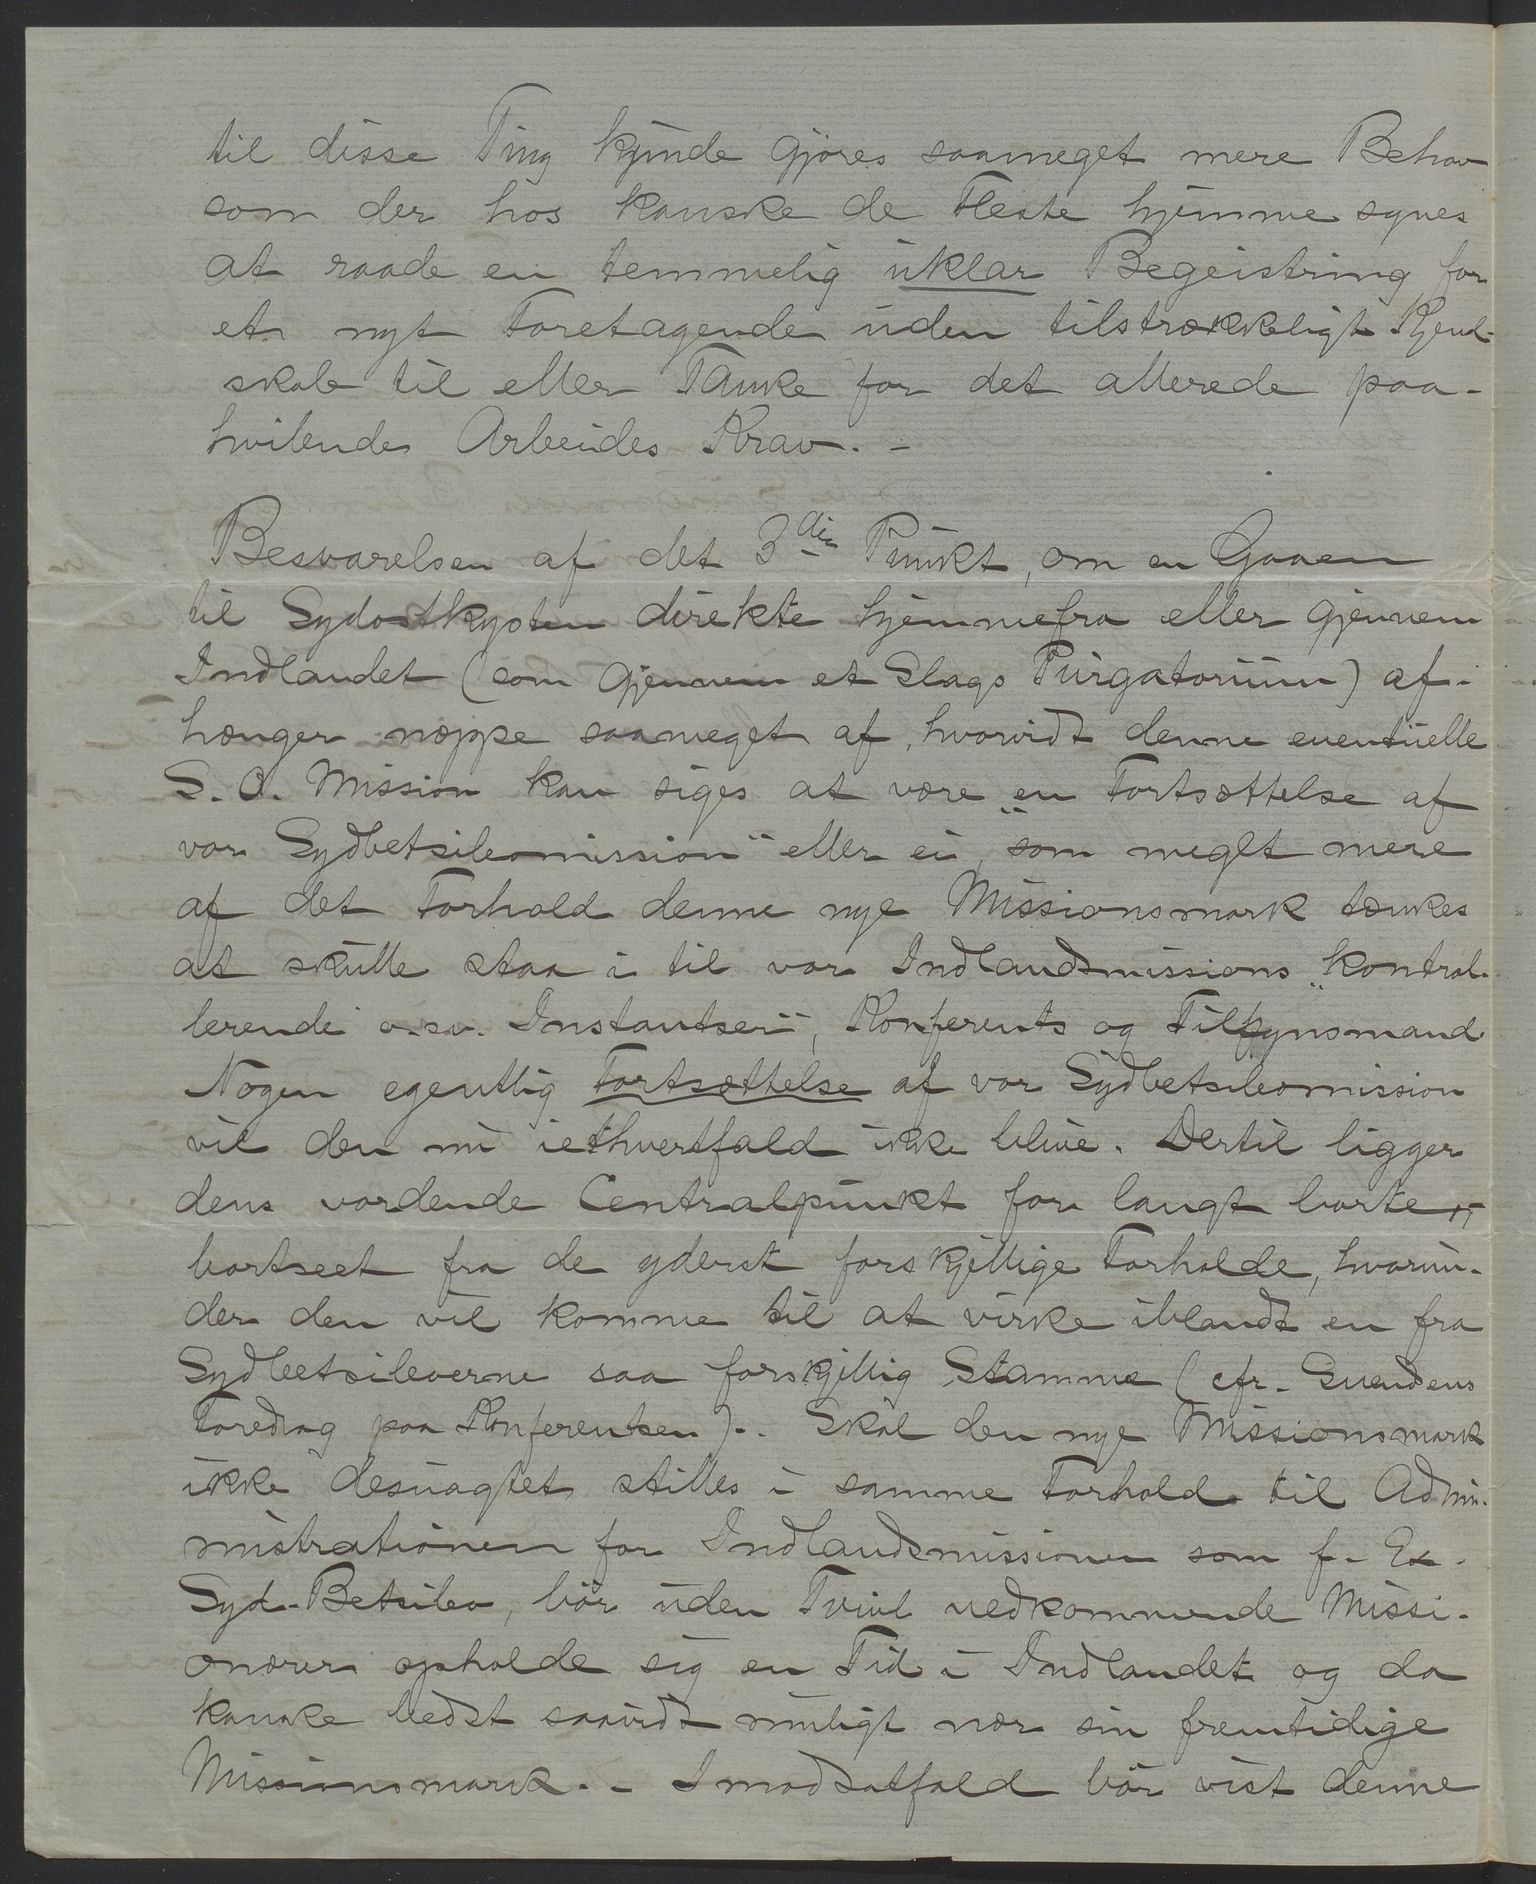 til disse Ting kunde gjøres saameget mere Behov
som der hos kanske de Fleste hjemme synes
at raade en temmelig uklar Begeistring for
et nyt Foretagende uden tilstrækkeligt Kjend-
skab til eller Tanke for det allerede paa-
hvilende Arbeides Krav. -
Besvarelsen af det 3die Punkt, om en Gaaen
til Sydostkysten direkte hjemmefra eller gjennem
Indlandet (som gjennem et Slags Purgatorium) af-
hænger neppe saameget af, hvorvidt denne eventuelle
S. O. Mission kan siges at være "en Fortsættelse af
vor Sydbetsileomission" eller ei, som meget mere
af det Forhold denne nye Missionsmark tænkes
at skulle staa i til vor Indlandsmissions "kontrol-
lerende o.s.v. Instantser", Konferents og Tilsynsmand
Nogen egentlig Fortsættelse af vor Sydbetsileomission
vil den nu iethvertfald ikke blive. Dertil ligger
dens vordende Centralpunkt for langt borte,
bortseet fra de yderst forskjellige Forholde, hvorun-
der den vil komme til at virke iblandt en fra
Sydbetsileoerne saa forskjellig Stamme (cfr. Svendsens
Foredrag paa Konferentsen). - Skal den nye Missionsmark
ikke desuagtet stilles i samme Forhold til Admi-
nistrationen for Indlandsmissionen som f. Ex.
Syd-Betsileo, bør uden Tvivl vedkommende Missi-
onærer opholde sig en Tid i Indlandet og da
kanske bedst saavidt muligt nær sin fremtidige
Missionsmark. - I modsatfald bør vist denne